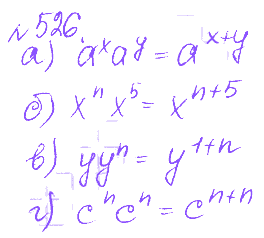 № 526.
а) aˣaʸ = aˣ⁺ʸ
б) xⁿx⁵ = xⁿ⁺⁵
в) yyⁿ = y¹⁺ⁿ
г) cⁿcⁿ = cⁿ⁺ⁿ